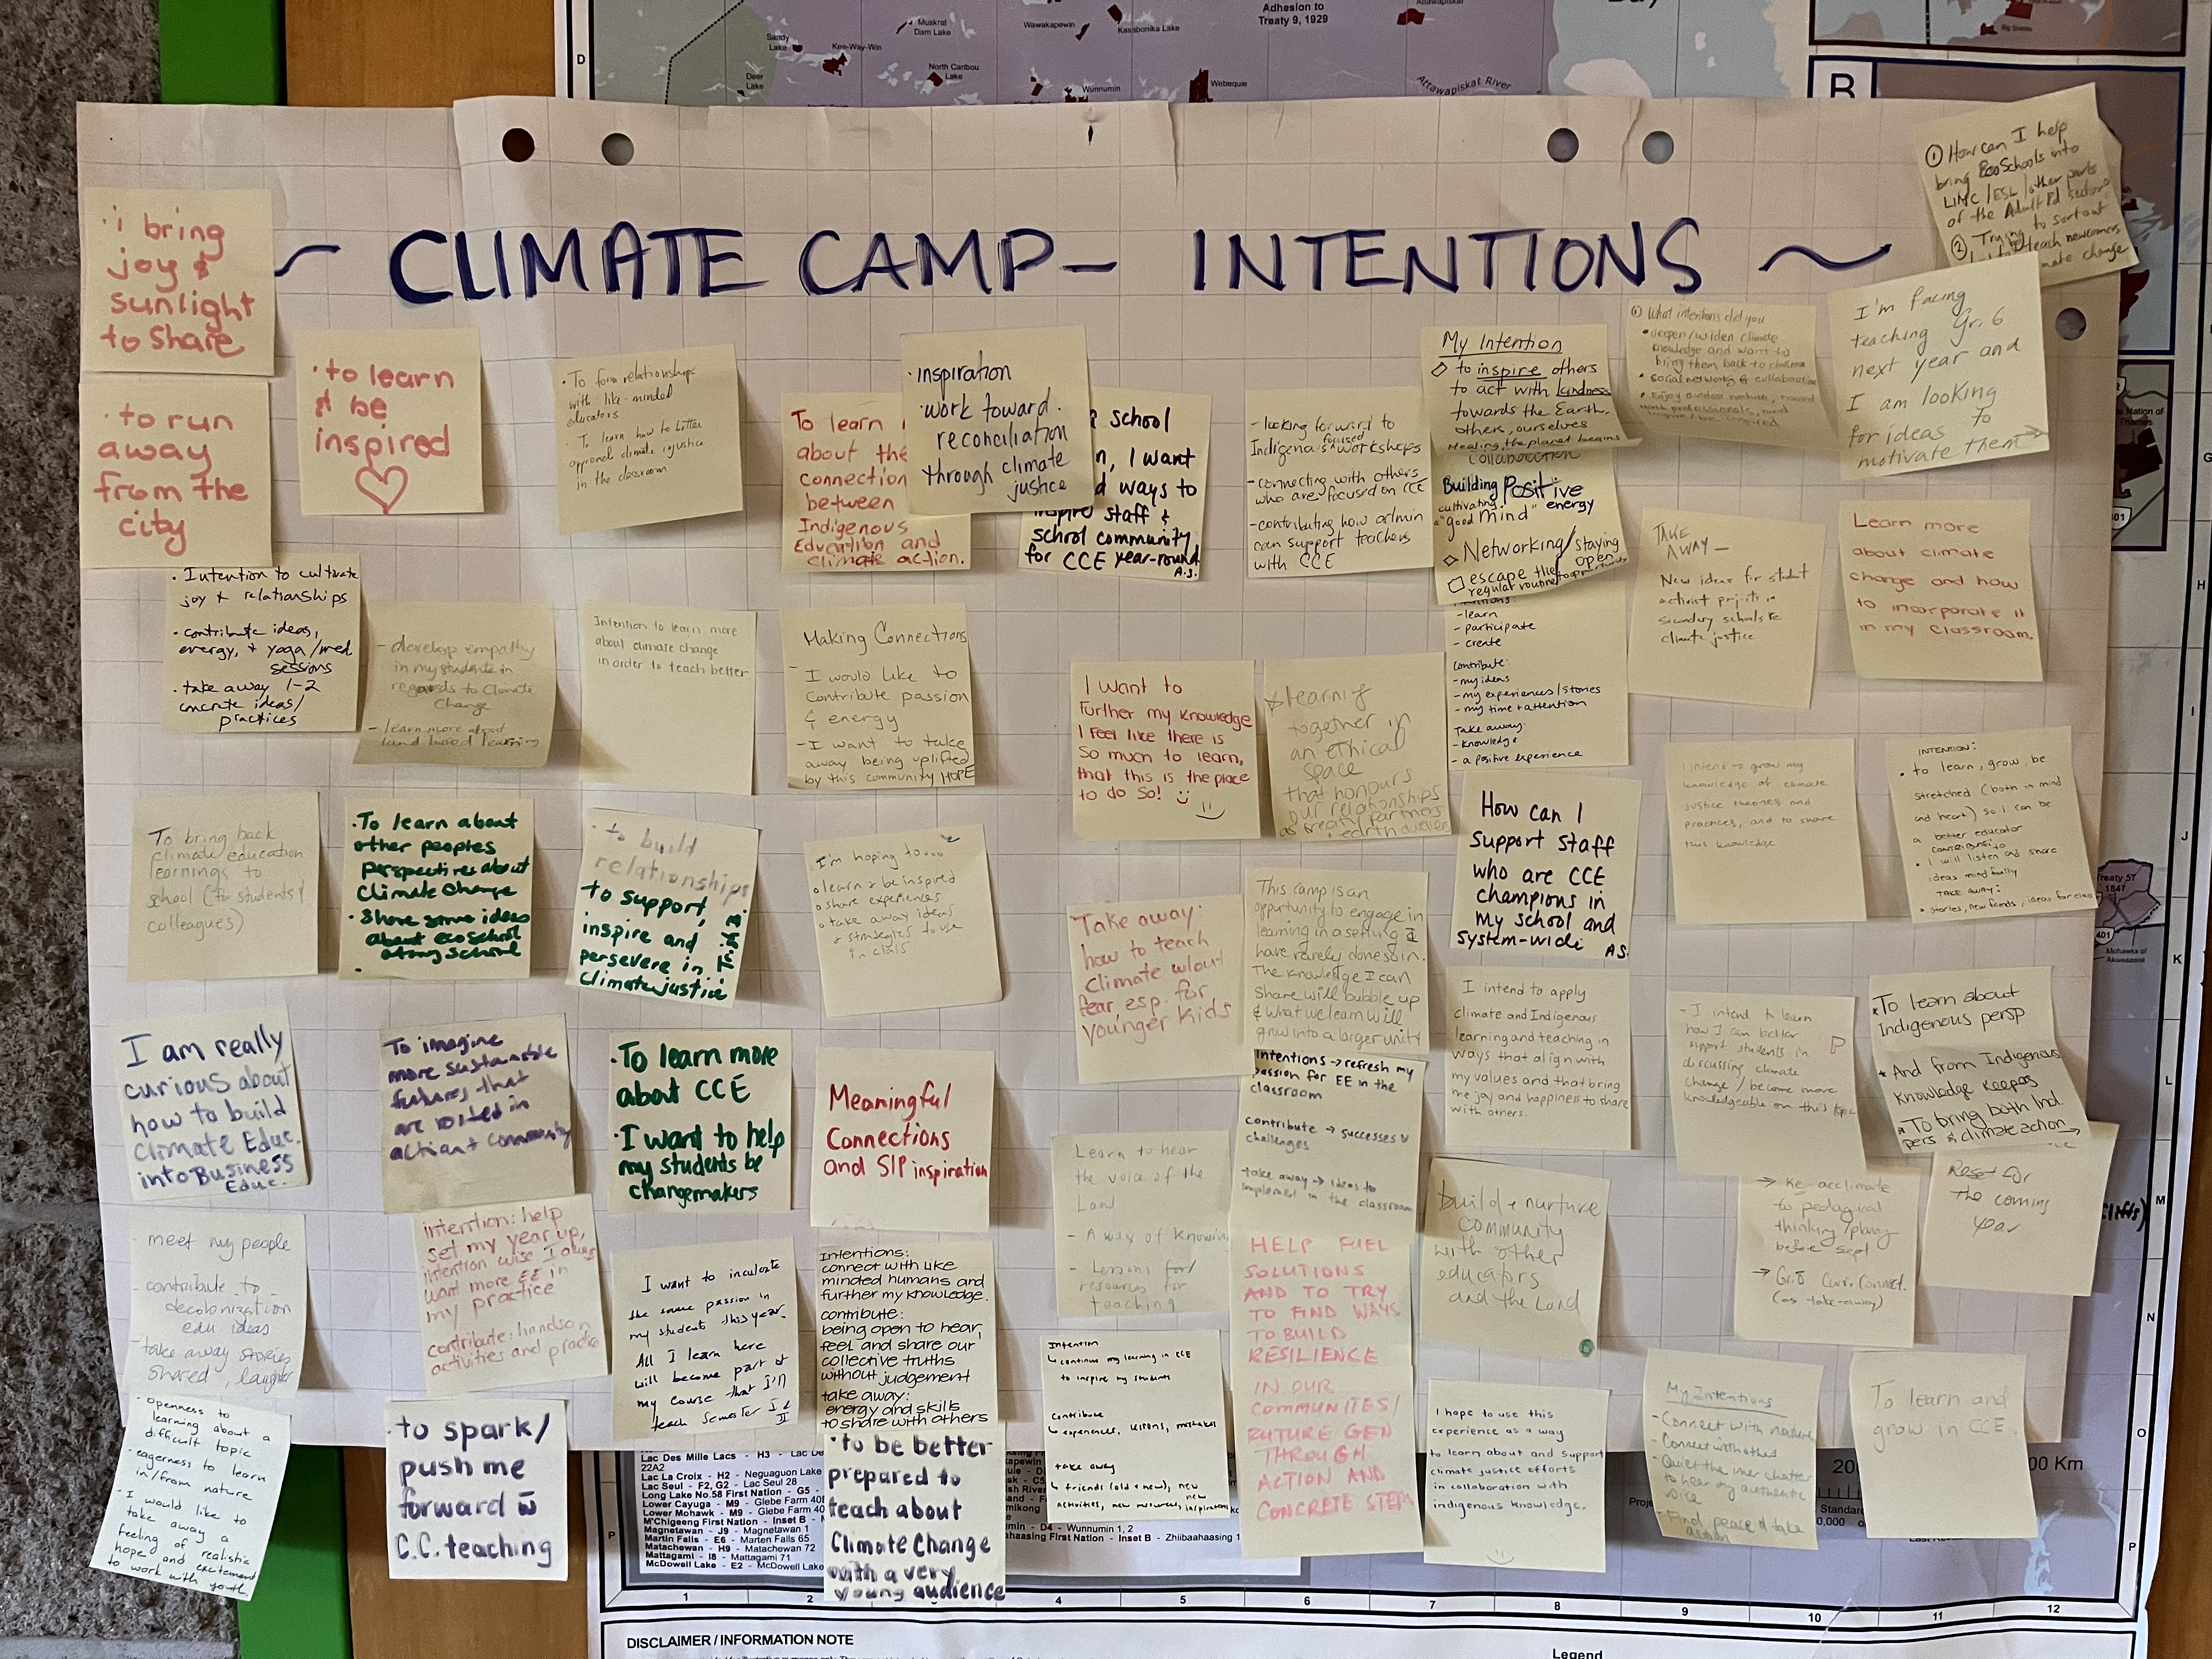 Adhesion to
Treaty 9, 1929
Muskrat
Dam Lake
Wawakapewin
Kasabonika Lake
Sandy
Lake
Kee-Way-Win
Deer
Lake
North Caribou
Lake
Wunnumin
Webequie
Attawapiskat River
D
B
~ CLIMATE CAMP - INTENTIONS ~
· i bring
joy &
sunlight
to share
· to run
away
from the
city
· to learn
& be
inspired
· To form relationships
with like-minded
educators
· To learn how to better
approach climate injustice
in the classroom
To learn
about the
connection
between
Indigenous
Education and
climate action.
· inspiration
· work toward
reconciliation
through climate
justice
school
I want
ways to
inspire staff &
school community
for CCE year-round
A.S.
- looking forward to
Indigenous focused workshops
- connecting with others
who are focused on CCE
- contributing how admin
can support teachers
with CCE
My Intention
to inspire others
to act with kindness
towards the Earth,
others, ourselves
Healing the planet begins
collaboration
Building Positive
cultivating "good mind" energy
Networking/staying
open
escape the
regular routine
What intentions did you
· deepen/widen climate
knowledge and want to
bring them back to classroom
· social networking & collaboration
I'm facing
teaching Gr. 6
next year and
I am looking
for ideas to
motivate them
① How can I help
bring EcoSchools into
LINC/ESL/other parts
of the Adult Ed sector
② Trying to sort out
teach newcomers
climate change
TAKE
AWAY —
New ideas for student
activist projects in
secondary schools re
climate justice
Learn more
about climate
change and how
to incorporate it
in my classroom.
· Intention to cultivate
joy & relationships
· contribute ideas,
energy, + yoga/med
sessions
· take away 1-2
concrete ideas/
practices
- develop empathy
in my students in
regards to Climate
Change
- learn more about
land based learning
Intention to learn more
about climate change
in order to teach better
Making Connections
- I would like to
contribute passion
& energy
- I want to take
away being uplifted
by this community HOPE
I want to
further my knowledge
I feel like there is
so much to learn,
that this is the place
to do so!
learning
together in
an ethical
space
that honours
our relationships
as treaty partners
+ earth dwellers
- learn
- participate
- create
Contribute:
- my ideas
- my experiences/stories
- my time + attention
Take away:
- knowledge
- a positive experience
I intend to grow my
knowledge of climate
justice theories and
practices, and to share
this knowledge
INTENTION:
· to learn, grow, be
stretched (both in mind
and heart) so I can be
a better educator
CONTRIBUTE
· I will listen and share
ideas mindfully
TAKE AWAY:
· stories, new friends, ideas for class
To bring back
climate education
learnings to
school (for students &
colleagues)
· To learn about
other peoples
perspectives about
Climate Change
· Share some ideas
about ecoschool
at my school
· to build
relationships
to support,
inspire and
persevere in
climate justice
I'm hoping to...
learn & be inspired
share experiences
take away ideas
& strategies to use
in class
Take away:
how to teach
Climate w/out
fear, esp. for
younger kids
This camp is an
opportunity to engage in
learning in a setting I
have rarely done so in.
The knowledge I can
share will bubble up
& what we learn will
grow into a larger unity
How can I
support staff
who are CCE
champions in
my school and
system-wide
A.S.
I am really
curious about
how to build
Climate Educ.
into Business
Educ.
To imagine
more sustainable
futures that
are rooted in
action + community
· To learn more
about CCE
· I want to help
my students be
changemakers
Meaningful
Connections
and SIP inspiration
Learn to hear
the voice of the
Land
- A way of knowing
- Lessons for/
resources for
teaching
Intentions → refresh my
passion for EE in the
classroom
contribute → successes &
challenges
take away → ideas to
implement in the classroom
I intend to apply
climate and Indigenous
learning and teaching in
ways that align with
my values and that bring
me joy and happiness to share
with others.
- I intend to learn
how I can better
support students in
discussing climate
change / become more
knowledgeable on this topic
To learn about
Indigenous persp
And from Indigenous
Knowledge Keepers
To bring both Ind.
pers & climate action
Reset for
the coming
year
→ Re-acclimate
to pedagogical
thinking/planning
before Sept
→ Gr. 6 Curr. Connect.
(as take-away)
- meet my people
- contribute to
decolonization
edu ideas
- take away stories
shared, laughter
intention: help
set my year up,
intention wise I always
want more EE in
my practice
contribute: hands on
activities and practice
I want to inculcate
the same passion in
my students this year.
All I learn here
will become part of
my course that I'll
teach Semester I & II
Intentions:
connect with like
minded humans and
further my knowledge.
contribute:
being open to hear,
feel and share our
collective truths
without judgement
take away:
energy and skills
to share with others
Intention
continue my learning in CCE
to inspire my students
Contribute
experiences, lessons, mistakes
take away
friends (old + new), new
activities, new resources, new inspirations
HELP FUEL
SOLUTIONS
AND TO TRY
TO FIND WAYS
TO BUILD
RESILIENCE
IN OUR
COMMUNITIES/
FUTURE GEN
THROUGH
ACTION AND
CONCRETE STEPS
build + nurture
community
with other
educators
and the Land
· openness to
learning about a
difficult topic
· eagerness to learn
in/from nature
· I would like to
take away a
feeling of realistic
hope and excitement
to work with youth
· to spark/
push me
forward w̄
C.C. teaching
· to be better
prepared to
teach about
Climate Change
with a very
young audience
I hope to use this
experience as a way
to learn about and support
climate justice efforts
in collaboration with
indigenous knowledge.
My Intentions
- Connect with nature
- Connect with others
- Quiet the inner chatter
to hear my authentic
voice
- Find peace & take
again
To learn and
grow in CCE.
Treaty 57
1847
Mohawks of
Akwesasne
Lac Des Mille Lacs - H3
22A2
Lac La Croix - H2 - Neguaguon Lake
Lac Seul - F2, G2 - Lac Seul 28
Long Lake No.58 First Nation - G5
Lower Cayuga - M9 - Glebe Farm
Lower Mohawk - M9 - Glebe Farm
M'Chigeeng First Nation - Inset B
Magnetawan - J9 - Magnetawan 1
Martin Falls - E6 - Marten Falls 65
Matachewan - H9 - Matachewan 72
Mattagami - I8 - Mattagami 71
McDowell Lake - E2 - McDowell Lake
D4 - Wunnumin 1, 2
First Nation - Inset B - Zhiibaahaasing
G
H
I
J
K
L
M
N
O
P
1 2 4 5 6 7 8 9 10 11 12
DISCLAIMER / INFORMATION NOTE
Legend